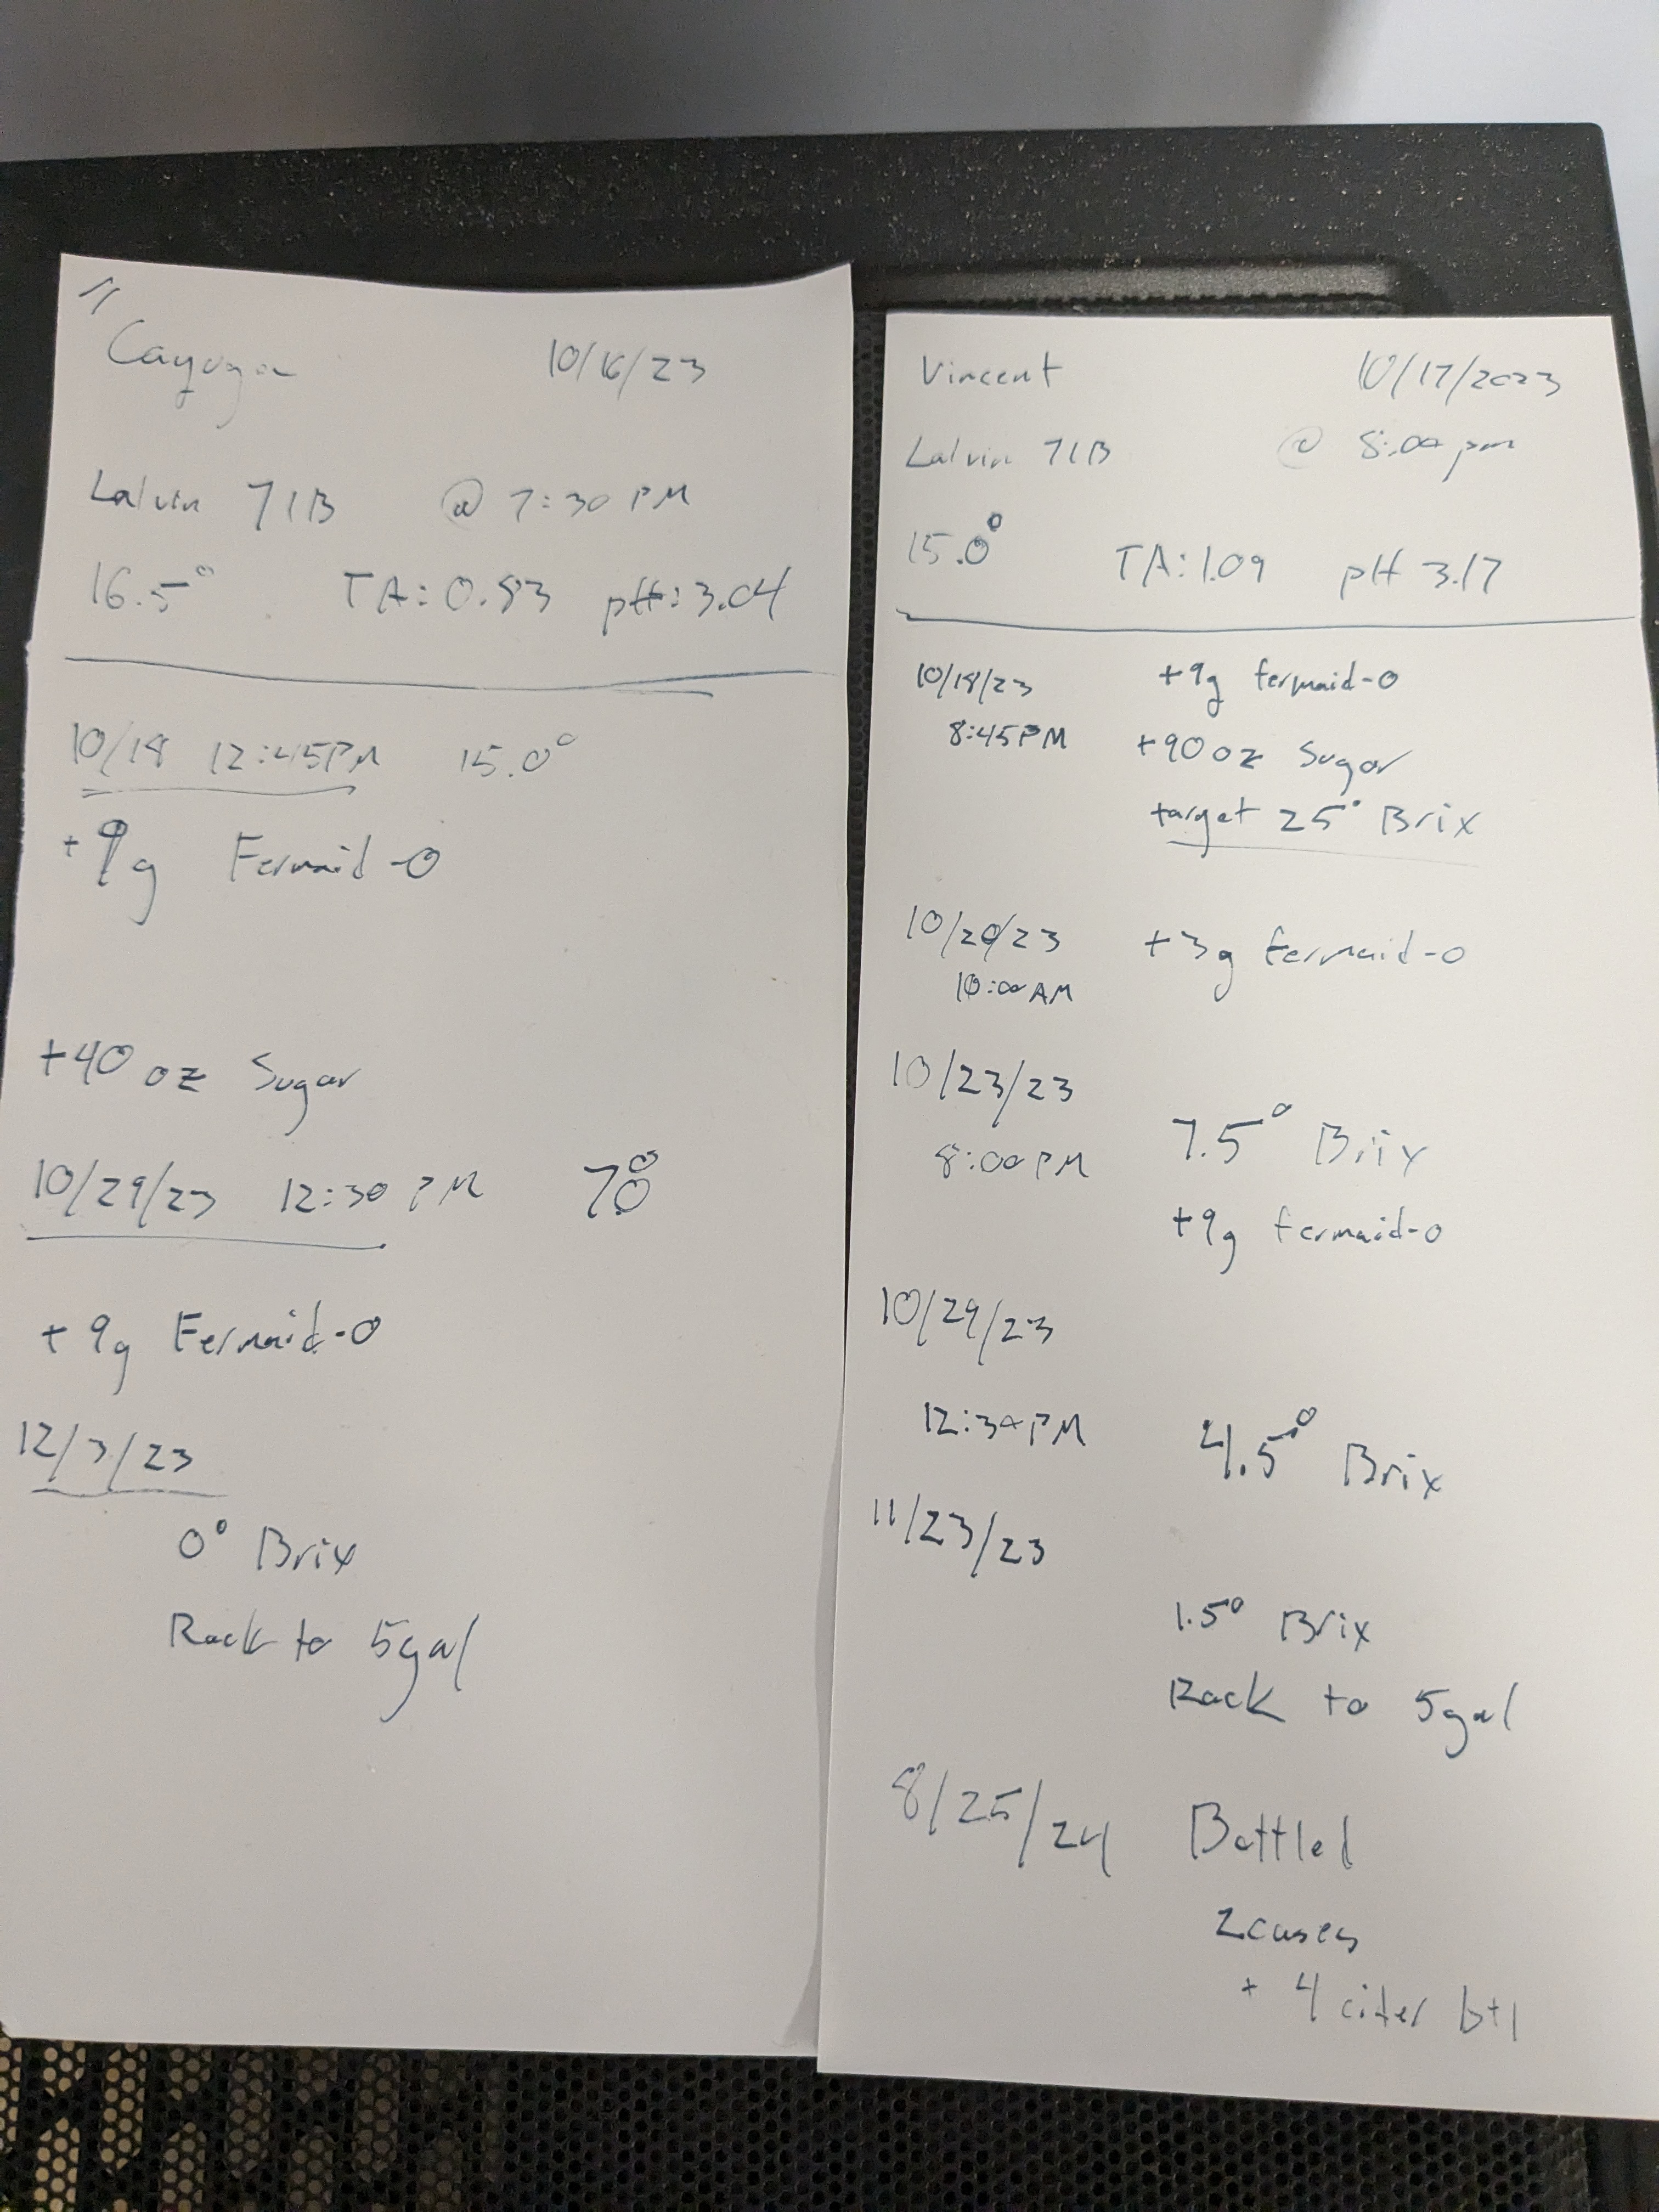 Cayuga 10/16/23
Lalvin 71B @ 7:30 PM
16.5° TA: 0.83 pH: 3.04
10/18 12:45PM 15.0°
+9g Fermaid-O
+40 oz Sugar
10/29/23 12:30 PM 7.0°
+9g Fermaid-O
12/3/23
0° Brix
Rack to 5gal
Vincent 10/17/2023
Lalvin 71B @ 8:00 pm
15.0° TA: 1.09 pH 3.17
10/18/23 +9g fermaid-O
8:45PM +90 oz Sugar
target 25° Brix
10/20/23 +3g fermaid-O
10:00AM
10/23/23
8:00PM 7.5° Brix
+9g fermaid-O
10/29/23
12:30PM 4.5° Brix
11/23/23
1.5° Brix
Rack to 5gal
8/25/24 Bottled
2 cases
+ 4 cider btl